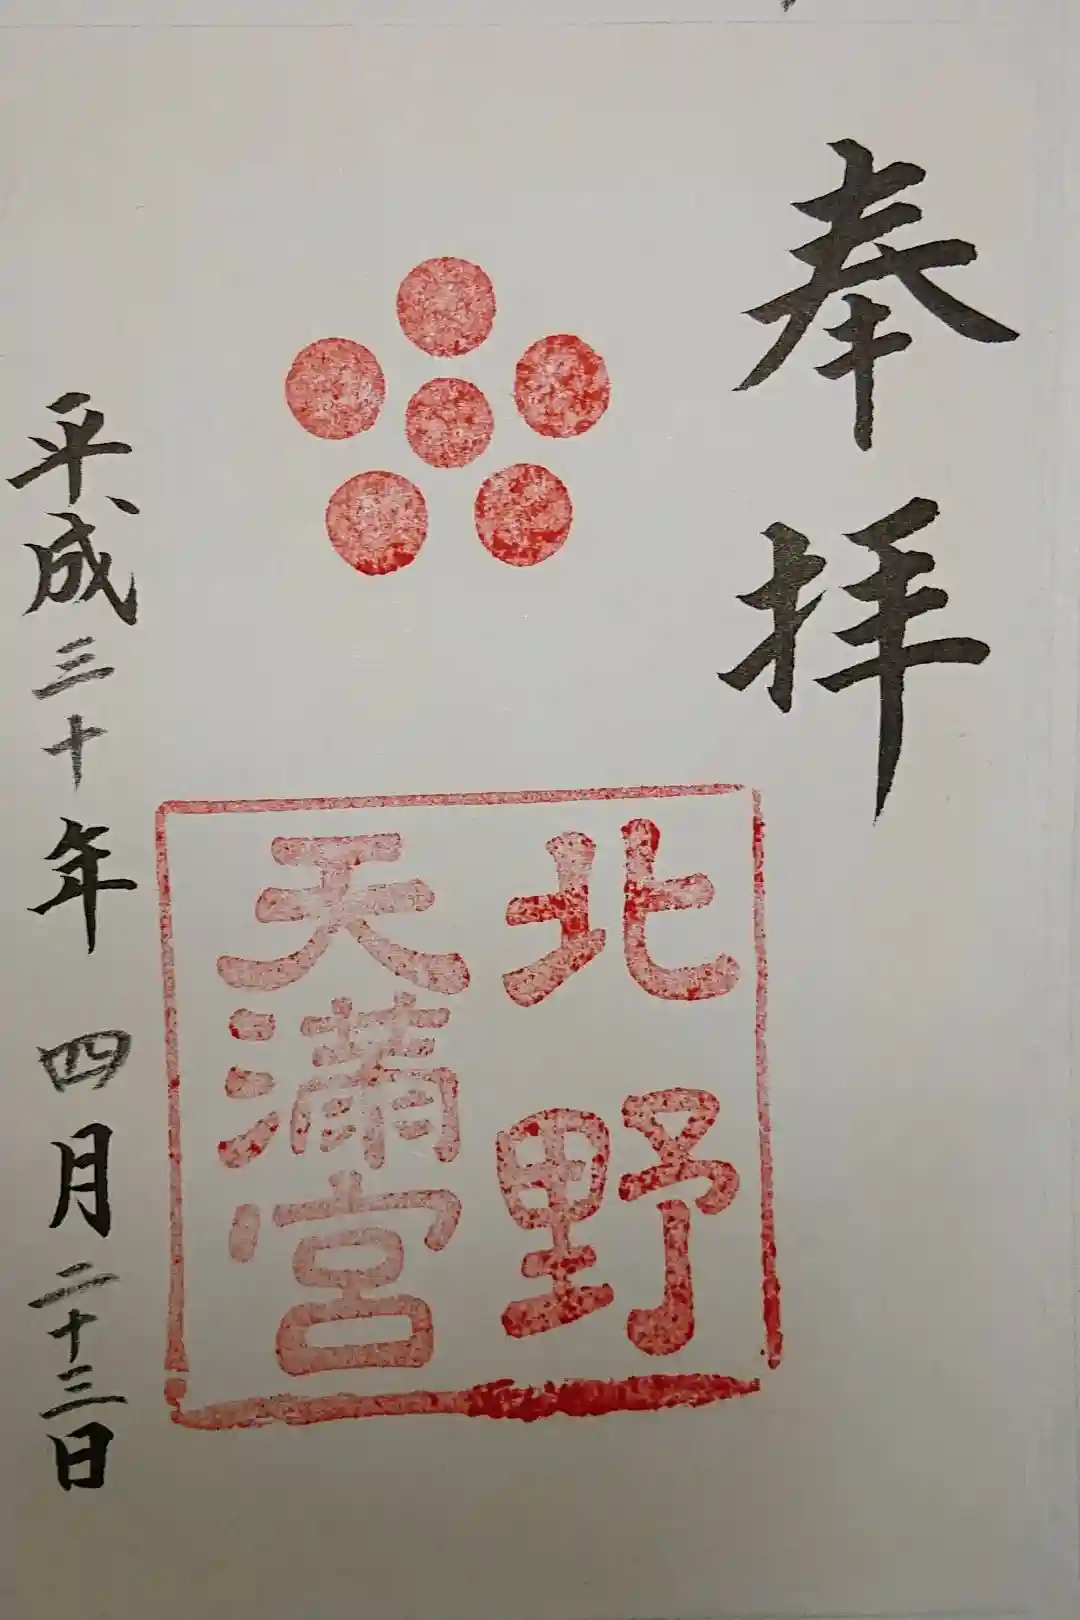 奉拝
北野
天満宮
平成三十年 四月二十三日